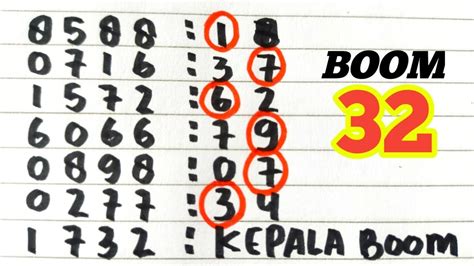 8588 : 18
0716 : 37
1572 : 62
6066 : 79
0898 : 07
0277 : 34
1732 : KEPALA BOOM
BOOM
32